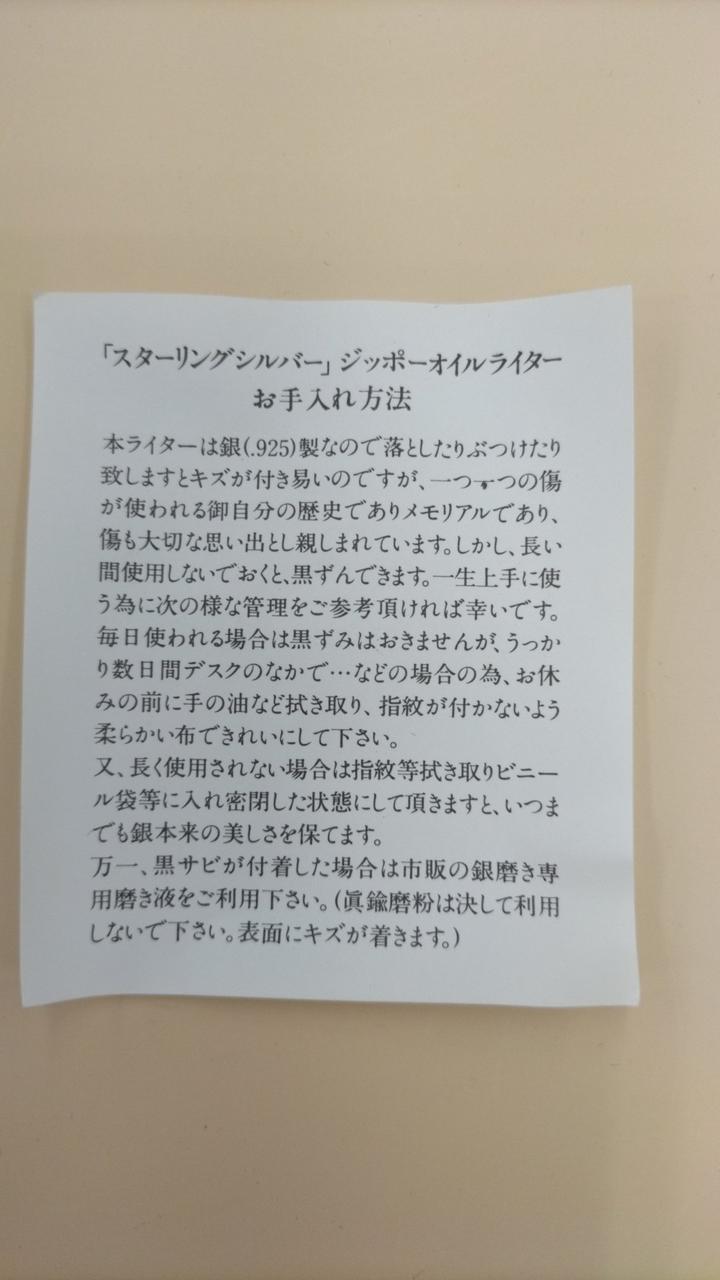 「スターリングシルバー」ジッポーオイルライター
お手入れ方法
本ライターは銀(.925)製なので落としたりぶつけたり
致しますとキズが付き易いのですが、一つ一つの傷
が使われる御自分の歴史でありメモリアルであり、
傷も大切な思い出とし親しまれています。しかし、長い
間使用しないでおくと、黒ずんできます。一生上手に使
う為に次の様な管理をご参考頂ければ幸いです。
毎日使われる場合は黒ずみはおきませんが、うっか
り数日間デスクのなかで…などの場合の為、お休
みの前に手の油など拭き取り、指紋が付かないよう
柔らかい布できれいにして下さい。
又、長く使用されない場合は指紋等拭き取りビニー
ル袋等に入れ密閉した状態にして頂きますと、いつま
でも銀本来の美しさを保てます。
万一、黒サビが付着した場合は市販の銀磨き専
用磨き液をご利用下さい。(眞鍮磨粉は決して利用
しないで下さい。表面にキズが着きます。)